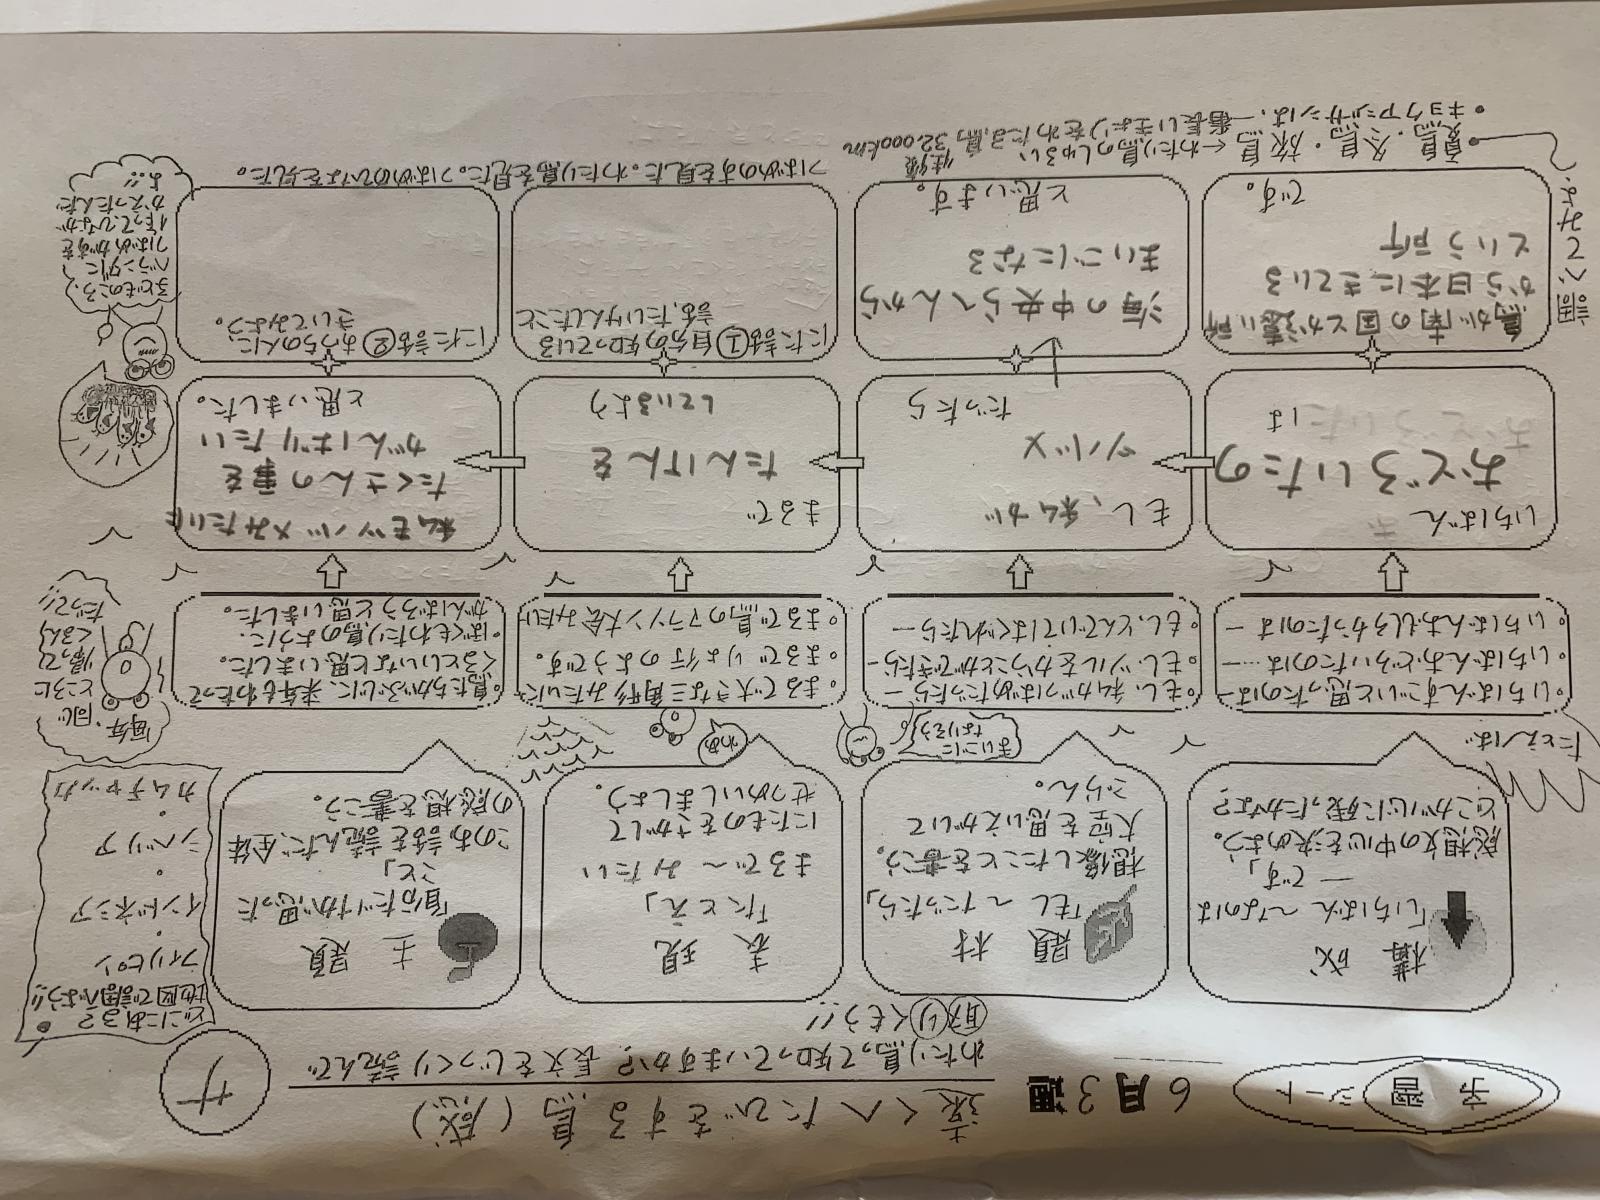 予習シート
6月3週
遠くへたびをする鳥(感)
サ
わたり鳥って知っていますか?長文をじっくり読んで
取りくもう!!
構成
「いちばん～なのは
―です」
感想文の中心を決めよう。
どこが心に残ったかな?
題材
「もし～だったら」
想像したことを書こう。
大空を思いえがいて
ごらん。
表現
「たとえ」
まるで～みたい
にたものをさがして
せつめいしましょう。
主題
「自分だけが思った
こと」
このお話を読んだ、全体
の感想を書こう。
どこにある?
地図で調べよう!!
フィリピン
・
インドネシア
・
シベリア
・
カムチャッカ
たとえば
まいごに
なりそう
わあ
毎年、同じ
ところに
帰って
くるん
だって!!
◦いちばんすごいと思ったのは―
◦いちばんおどろいたのは……―
◦いちばんおもしろかったのは―
◦もし、私がつばめだったら―
◦もし、ツルをかうことができたら―
◦もし、とんでいてはぐれたら―
◦まるで大きな三角形みたいに
◦まるでりょ行のようです。
◦まるで鳥のマラソン大会みたい
◦鳥たちがぶじに、来年もわたって
くるといいなと思いました。
◦ぼくもわたり鳥のように、
がんばろうと思いました。
いちばん
おどろいたの
は
もし、私が
ツバメ
だったら
まるで
たんけんを
しているよう
私もツバメみたいに
たくさんの事を
がんばりたい
と思いました。
鳥が南の国とか遠い所
から日本にきている
という所
です。
海の中央らへんから
まいごになる
と思います。
にた話①自分の知っている
話、たいけんしたこと
にた話②おうちの人に、
きいてみよう。
子どものころ、
ベランダに
つばめがすを
作って、ひなが
かえったんだ
よ!!
調べてみよ。
・夏鳥・冬鳥・旅鳥←わたり鳥のしゅるい
・キョクアジサシは、一番長いきょりをわたる鳥。32,000km
往復
つばめのすを見た。わたり鳥を見た。つばめのひなを見た。